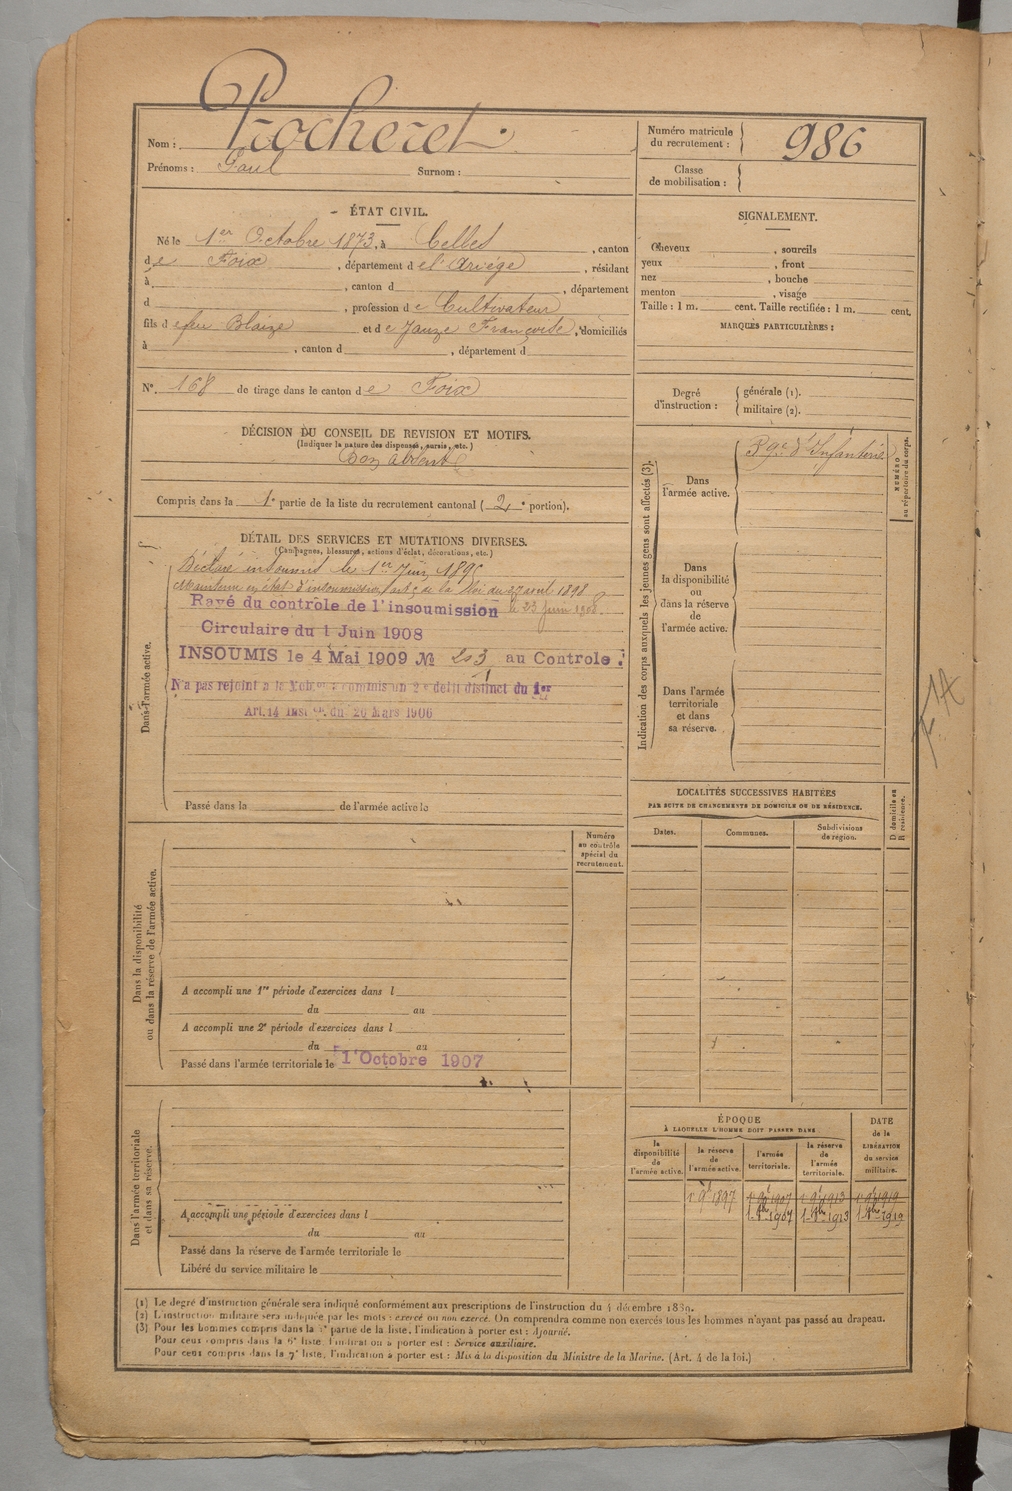 Nom : Rocheret
Prénoms : Paul Surnom :
Numéro matricule du recrutement : 986
Classe de mobilisation :
ÉTAT CIVIL.
Né le 1er Octobre 1873, à Celles, canton
de Foix, département de l'Ariège, résidant
à , canton d , département
d , profession de Cultivateur
fils de feu Blaize et de Jauze Françoise, domiciliés
à , canton d , département d
N° 168 de tirage dans le canton de Foix
DÉCISION DU CONSEIL DE REVISION ET MOTIFS.
(Indiquer la nature des dispenses, sursis, etc.)
Bon absent
Compris dans la 1e partie de la liste du recrutement cantonal (2e portion).
DÉTAIL DES SERVICES ET MUTATIONS DIVERSES.
(Campagnes, blessures, actions d'éclat, décorations, etc.)
Dans l'armée active.
Déclaré insoumis le 1er Juin
Maintenu en état d'insoumission art. de la loi du 27 avril 1898
Rayé du contrôle de l'insoumission le 23 Juin 1908.
Circulaire du 1 Juin 1908
INSOUMIS le 4 Mai 1909 No 203 au Controle :
N'a pas rejoint a commis un 2e délit distinct du 1er
Art. 14 Inst. on du 20 Mars 1906
Passé dans la de l'armée active le
Numéro
au contrôle
spécial du
recrutement.
Dans la disponibilité
ou dans la réserve de l'armée active.
A accompli une 1re période d'exercices dans l
du au
A accompli une 2e période d'exercices dans l
du au
Passé dans l'armée territoriale le 1 Octobre 1907
Dans l'armée territoriale
et dans sa réserve.
A accompli une période d'exercices dans l
du au
Passé dans la réserve de l'armée territoriale le
Libéré du service militaire le
SIGNALEMENT.
Cheveux , sourcils
yeux , front
nez , bouche
menton , visage
Taille : 1 m. cent. Taille rectifiée : 1 m. cent.
MARQUES PARTICULIÈRES :
Degré d'instruction :
générale (1).
militaire (2).
Indication des corps auxquels les jeunes gens sont affectés (3).
Dans
l'armée active.
d'Infanterie
NUMÉRO
au répertoire du corps.
Dans
la disponibilité
ou
dans la réserve
de
l'armée active.
Dans l'armée
territoriale
et dans
sa réserve.
LOCALITÉS SUCCESSIVES HABITÉES
PAR SUITE DE CHANGEMENTS DE DOMICILE OU DE RÉSIDENCE.
Dates. Communes. Subdivisions de région.
D domicile ou
R résidence.
ÉPOQUE
À LAQUELLE L'HOMME DOIT PASSER DANS
DATE
de la
LIBÉRATION
du service
militaire.
la disponibilité de l'armée active.
la réserve de l'armée active.
l'armée territoriale.
la réserve de l'armée territoriale.
1897 1907 1913 1919
1907 1913 1919
(1) Le degré d'instruction générale sera indiqué conformément aux prescriptions de l'instruction du 4 décembre 1889.
(2) L'instruction militaire sera indiquée par les mots : exercé ou non exercé. On comprendra comme non exercés tous les hommes n'ayant pas passé au drapeau.
(3) Pour les hommes compris dans la partie de la liste, l'indication à porter est : Ajourné.
Pour ceux compris dans la 6e liste, l'indication à porter est : Service auxiliaire.
Pour ceux compris dans la 7e liste, l'indication à porter est : Mis à la disposition du Ministre de la Marine. (Art. 4 de la loi.)